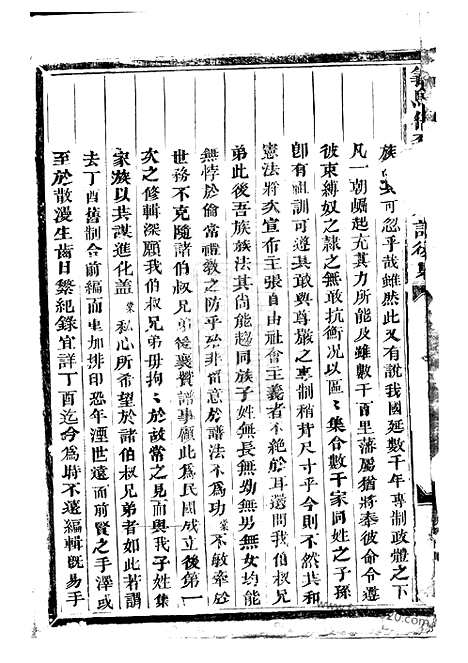 族 可忽乎哉雖然此又有說我國延數千年專制政體之下
凡一朝崛起尤其力所能及雖數千百里藩屬猶將奉彼命令遵
彼束縛奴之隸之無敢抗衡况以區〻集合數千家同姓之子孫
卽有祖訓可遵其敢與尊嚴之專制稍背尺寸乎今則不然共和
憲法將次宣布主張自由社會主義者不絶於耳還問我伯叔兄
弟此後吾族族法其尚能趦同族子姓無長無幼無男無女均能
無悖於倫常禮敎之防乎殆非留意於譜法不爲功 業不敏牽於
世務不克隨諸伯叔兄弟後襄贊譜事顧此爲民國成立後第一
次之修輯深願我伯叔兄弟毋拘〻於故常之見而與我子姓集
家族以共謀進化蓋 業私心所希望於諸伯叔兄弟者如此若謂
去丁酉舊制合前編而重加排印恐年湮世遠而前賢之手澤或
至於散漫生齒日繁紀錄宜詳丁酉迄今爲時不遠編輯旣易手